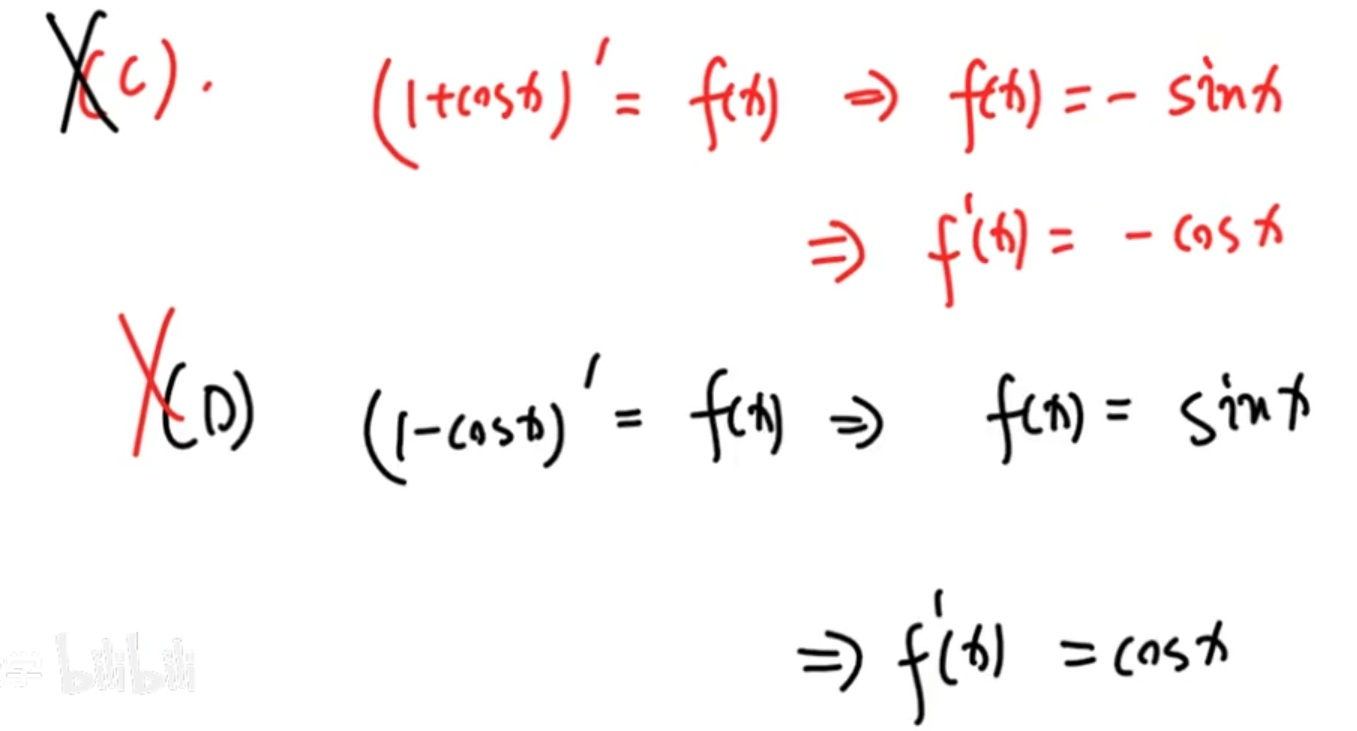 (C). (1+cosx)' = f(x) ⇒ f(x) = - sinx
⇒ f'(x) = - cosx
(D) (1-cosx)' = f(x) ⇒ f(x) = sinx
⇒ f'(x) = cosx
学 bilibili